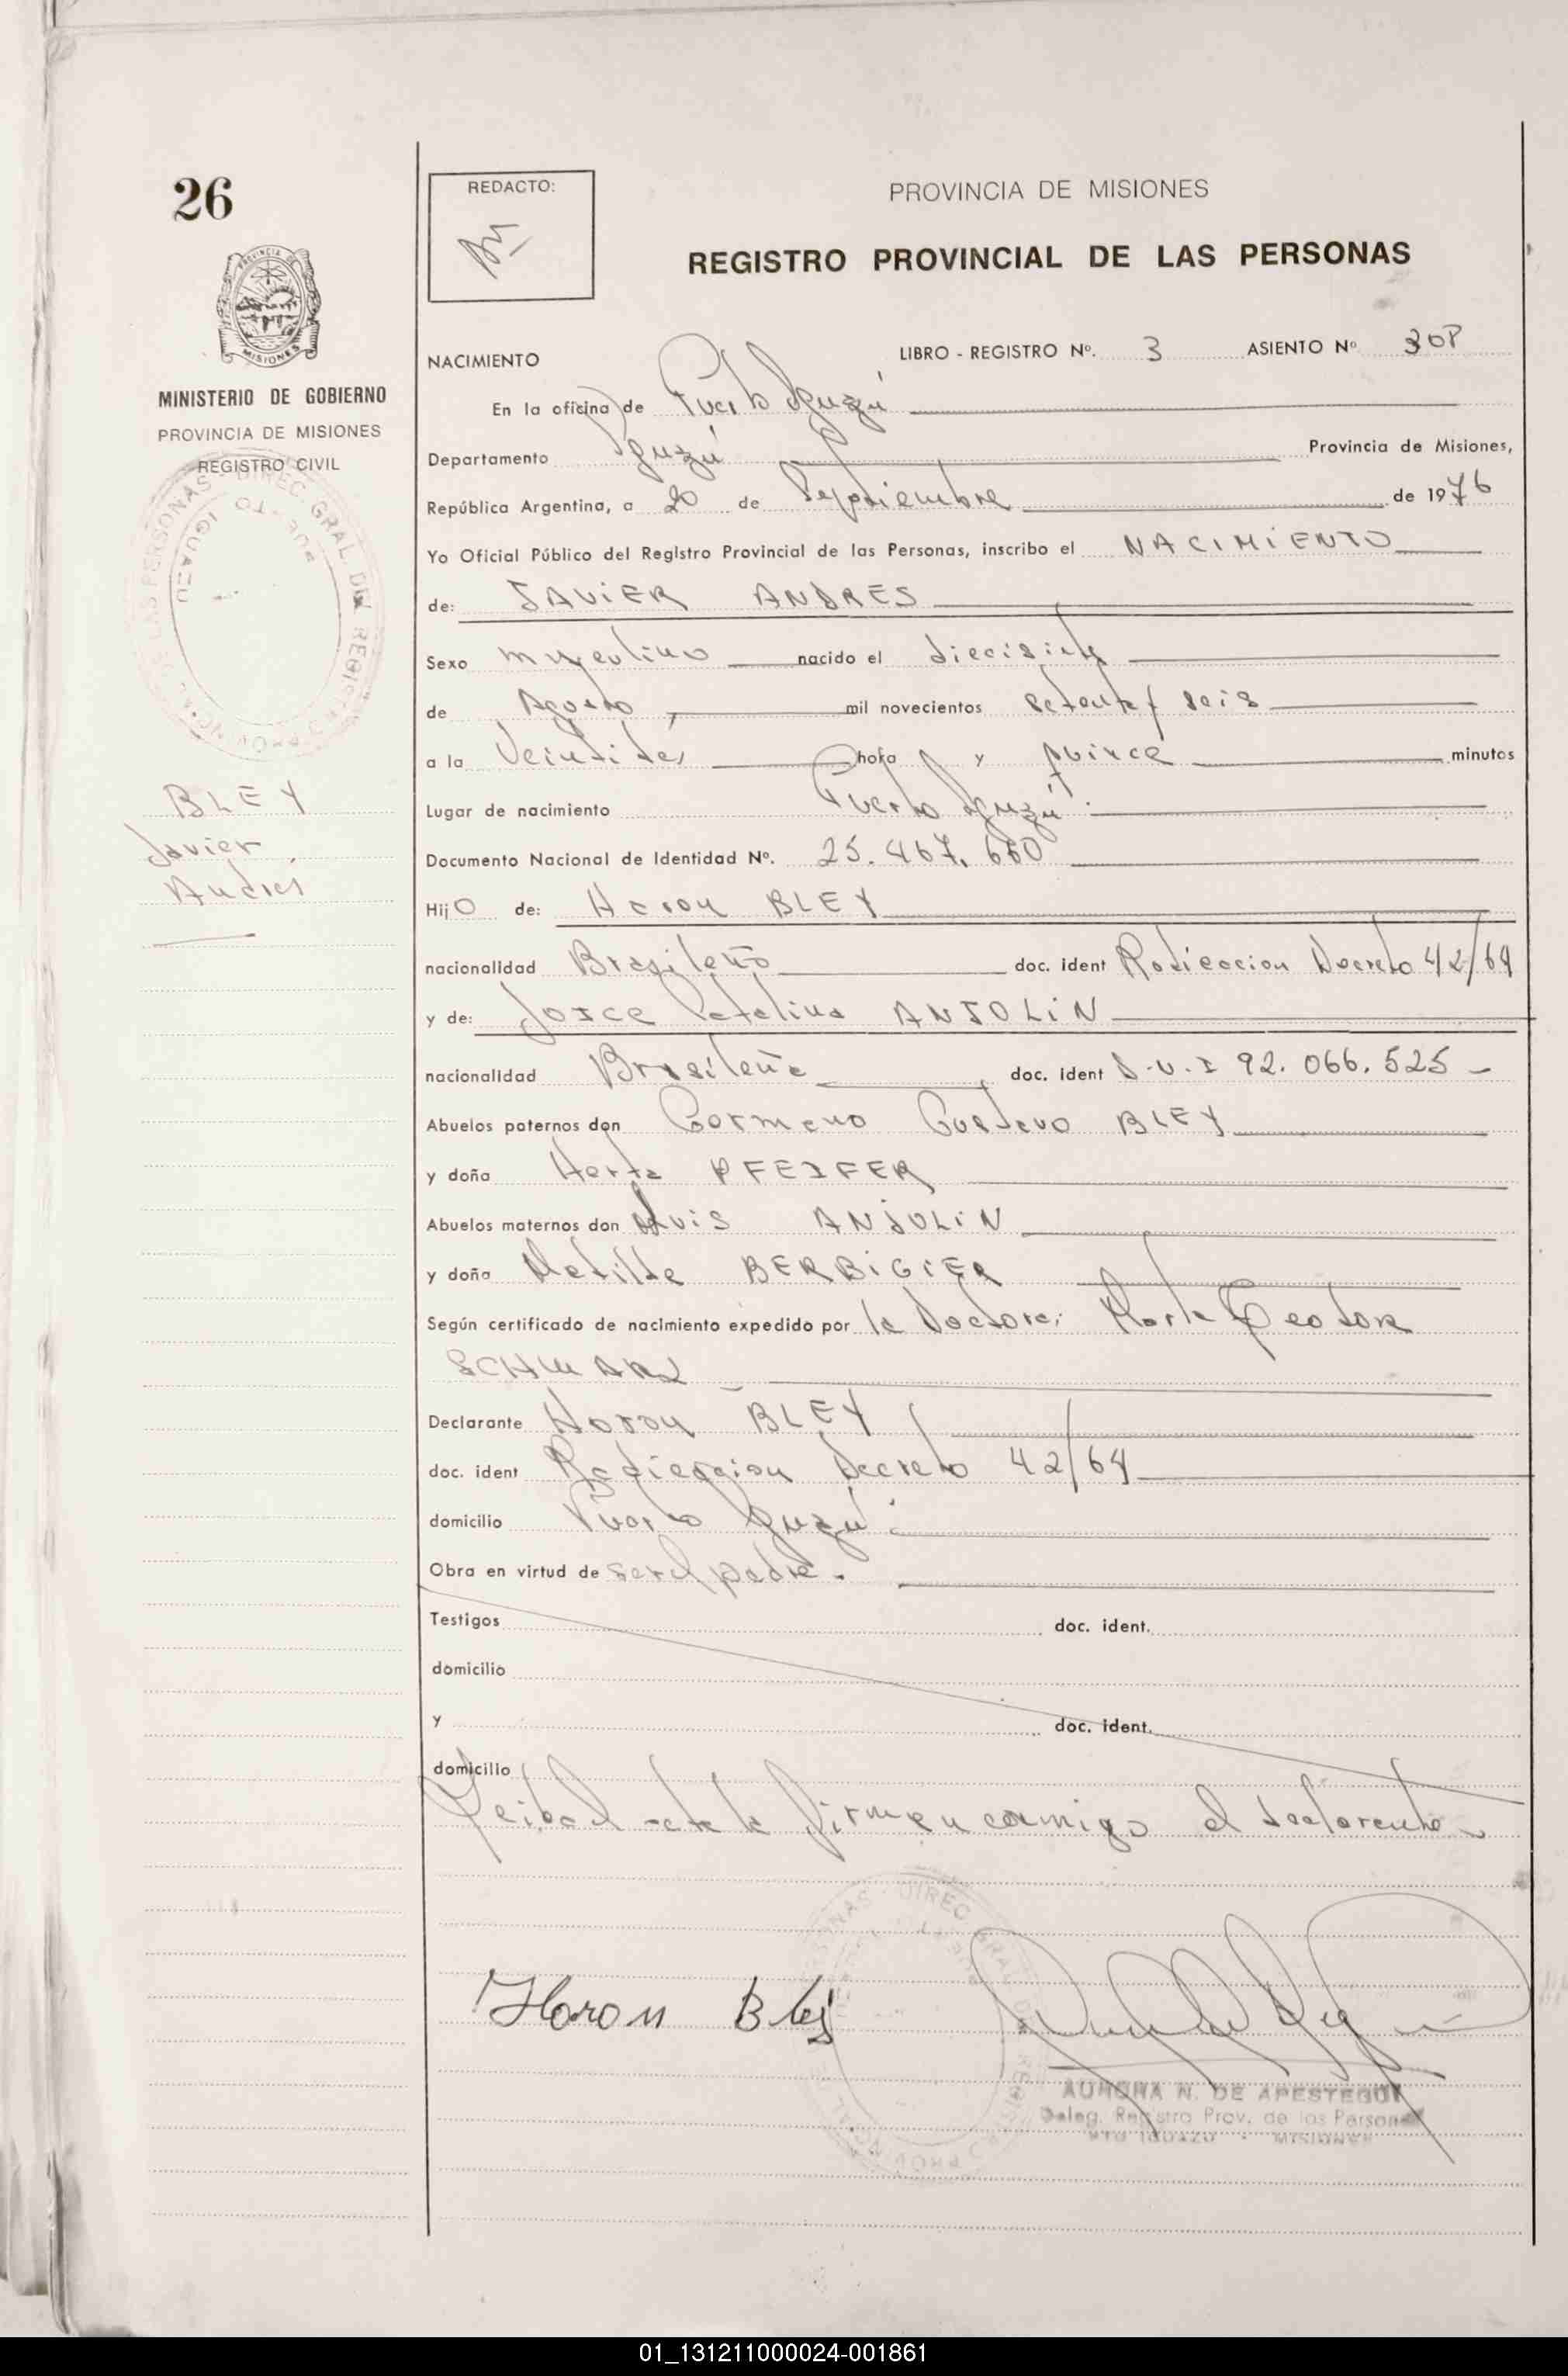 26
REDACTO:
PROVINCIA DE MISIONES
REGISTRO PROVINCIAL DE LAS PERSONAS
MISIONES
MINISTERIO DE GOBIERNO
PROVINCIA DE MISIONES
REGISTRO CIVIL
NACIMIENTO
LIBRO - REGISTRO Nº. 3 ASIENTO Nº 308
En la oficina de Puerto Iguazú
Departamento Iguazú Provincia de Misiones,
República Argentina, a 20 de Septiembre de 1976
Yo Oficial Público del Registro Provincial de las Personas, inscribo el NACIMIENTO
de: JAVIER ANDRES
Sexo masculino nacido el diecisiete
de Agosto mil novecientos setenta y seis
a la Veintitrés hora y quince minutos
Lugar de nacimiento Puerto Iguazú
BLEY
Javier
Andrés
Documento Nacional de Identidad Nº. 25.467.660
Hijo de: Haron BLEY
nacionalidad Brasileño doc. ident Radicacion Decreto 42/64
y de: Joice Catalina ANJOLIN
nacionalidad Brasileña doc. ident D.N.I 92.066.525 -
Abuelos paternos don Germano Gustavo BLEY
y doña Herta PFEIFER
Abuelos maternos don Luis ANJOLIN
y doña Matilde BERBIGIER
Según certificado de nacimiento expedido por la Doctora: Marta Teodora
SCHWARZ
Declarante Haron BLEY
doc. ident Radicacion Decreto 42/64
domicilio Puerto Iguazú
Obra en virtud de ser el padre.
Testigos doc. ident.
domicilio
y doc. ident.
domicilio
Leida el acta la firman conmigo el declarante
Haron Bley
AURORA N. DE APESTEGUI
Deleg. Registro Prov. de las Personas
PTO IGUAZU - MISIONES
01_131211000024-001861